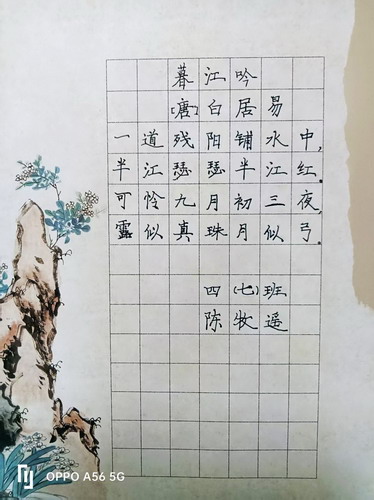 暮江吟
[唐]白居易
一道残阳铺水中,
半江瑟瑟半江红.
可怜九月初三夜,
露似真珠月似弓.
四(七)班
陈牧遥
OPPO A56 5G